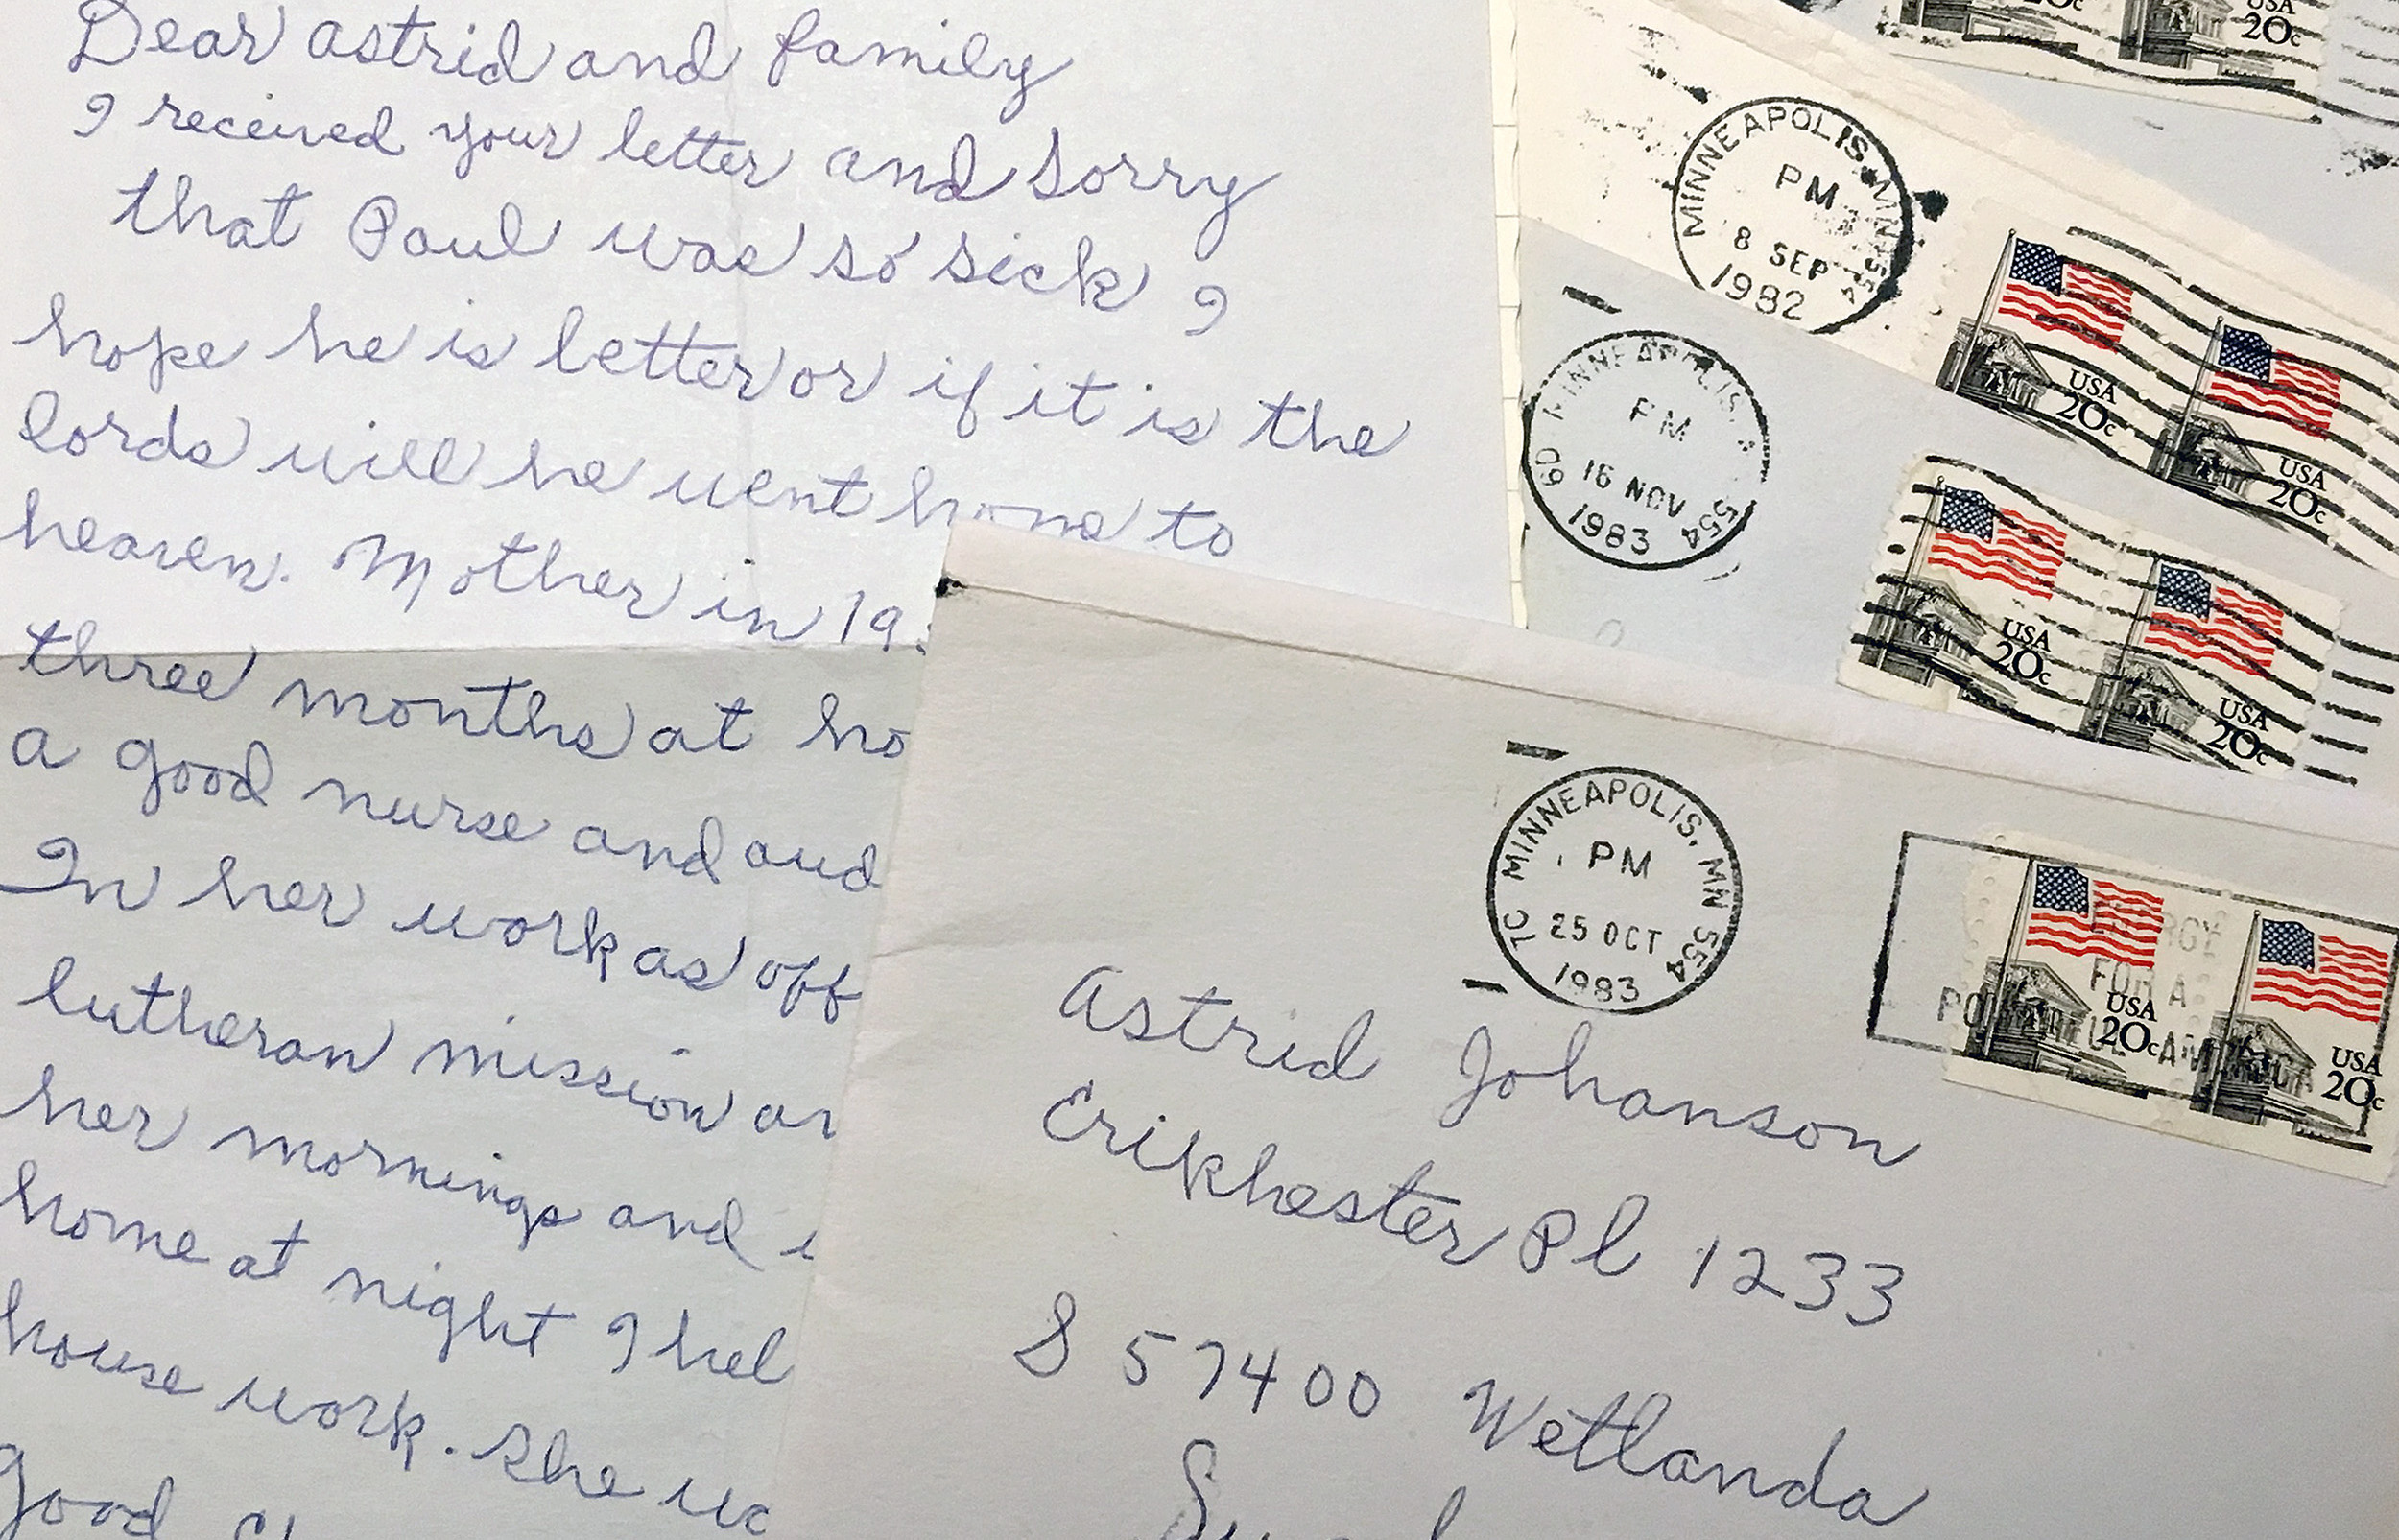 Dear Astrid and family
I received your letter and sorry
that Paul was so sick I
hope he is better or if it is the
lords will he went home to
heaven. Mother in 19
three months at ho
a good nurse and aud
In her work as off
lutheran mission an
her mornings and i
home at night I hel
house work. She wa
Good
USA
20c
20c
MINNEAPOLIS, MN 554
PM
8 SEP
1982
USA
20c
USA
20c
MINNEAPOLIS, 554
PM
16 NOV
1983
60
USA
20c
USA
20c
TC MINNEAPOLIS, MN 554
PM
25 OCT
1983
ENERGY
FOR A
POWERFUL AMERICA
USA
20c
USA
20c
Astrid Johanson
Erikhester Pl 1233
S 57400 Wetlanda